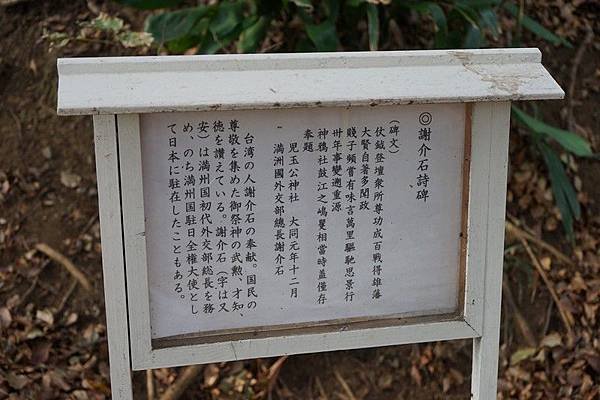 ◎謝介石詩碑
(碑文)
仗鉞登壇衆所尊功成百戦得雄藩
大賢自著多聞政
賤子頻嘗有味言萬里驅馳思景行
卅年事變遡重源
神鴉社鼓江之嶋矍相當時蓋僅存
奉題
児玉公神社 大同元年十二月
満洲國外交部總長謝介石
台湾の人謝介石の奉献。国民の
尊敬を集めた御祭神の武勲、才知、
徳を讃えている。謝介石(字は又
安)は満州国初代外交部総長を務
め、のち満州国駐日全権大使とし
て日本に駐在したこともある。